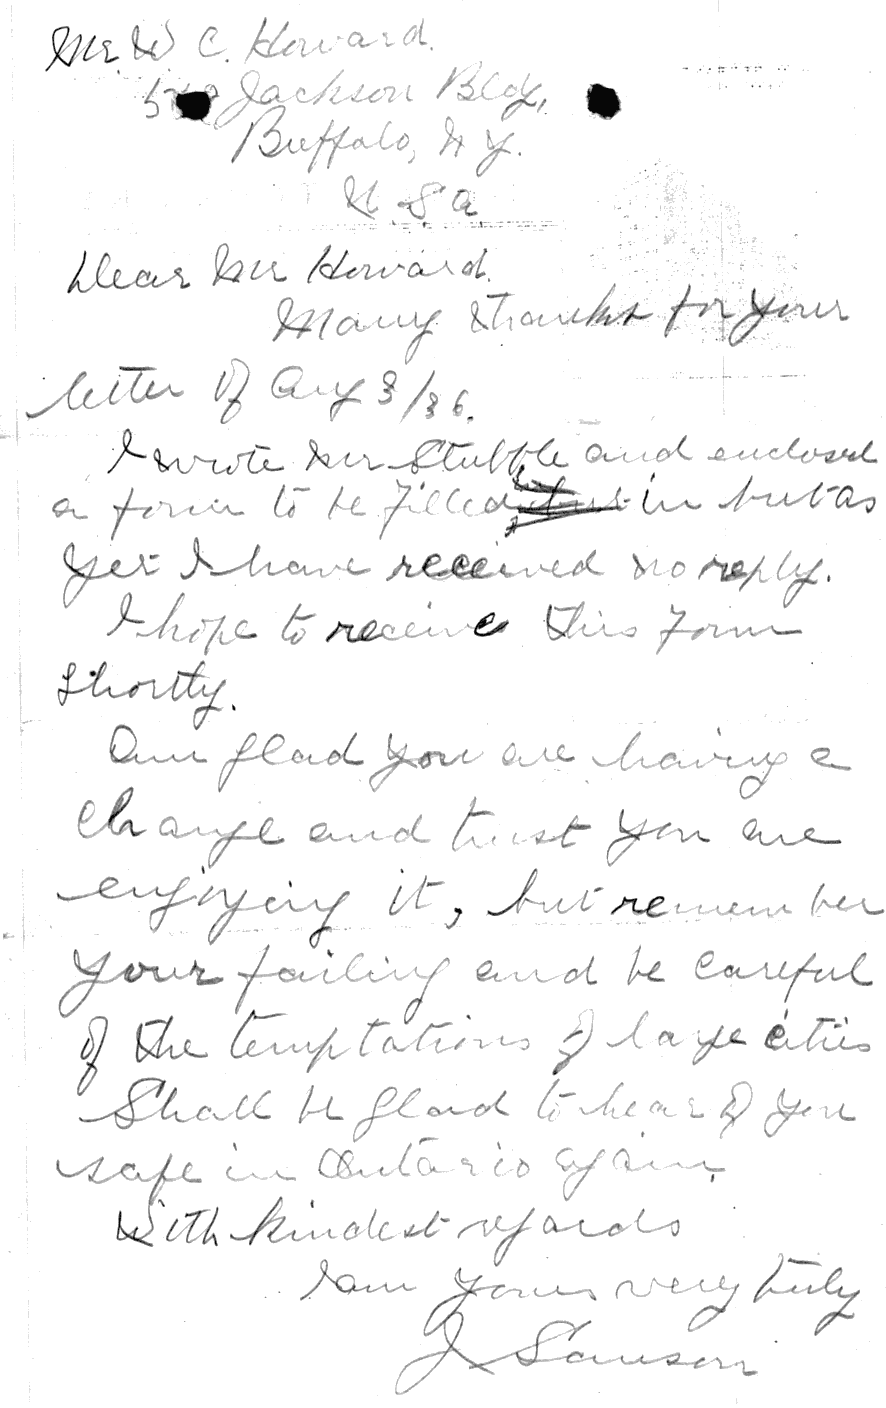 Mr. W C. Howard.
Jackson Bldg,
Buffalo, N Y.
U. S. a
Dear Mr Howard.
Many thanks for your
letter of Aug 3/36.
I wrote Mr Stubble and enclosed
a form to be filled in but as
yet I have received no reply.
I hope to receive this form
shortly.
Am glad you are having a
change and trust you are
enjoying it, but remember
your failing and be careful
of the temptations of large cities
Shall be glad to hear of you
safe in Ontario again.
With kindest regards
I am yours very truly
J Samson